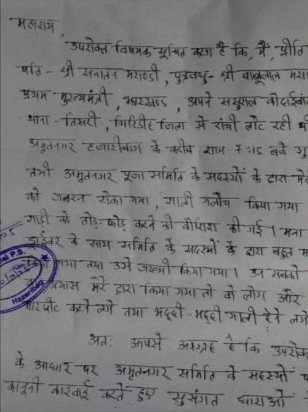 महाशय,
उपरोक्त विषयक सूचित करना है कि, मैं, प्रीति
पति - श्री सनातन मराण्डी, पुत्रवधु - श्री बाबूलाल मरा
प्रथम मुख्यमंत्री, झारखण्ड, अपने ससुराल कोदाईबां
थाना - तिसरी, गिरिडीह जिला से रांची लौट रही थी
अमृतनगर हजारीबाग के करीब शाम 7:15 बजे
तभी अमृतनगर पूजा समिति के सदस्यों के द्वारा मे
को जबरन रोका गया, गाली गलौच किया गया
गाड़ी को तोड़-फोड़ करने की कोशिश की गई। मना
ड्राईवर के साथ समिति के सदस्यों के द्वारा बहुत
गया तथा उसे जख्मी किया गया। उन सबको
प्रयास मेरे द्वारा किया गया तो वो लोग और
मारपीट करने लगे तथा भद्दी-भद्दी गाली देने लगे
P.S.
Hazaribag
अतः आपसे आग्रह है कि उपरोक्त
के आधार पर अमृतनगर समिति के सदस्यों प
कानूनी कारवाई करते हुए सुसंगत धाराओं